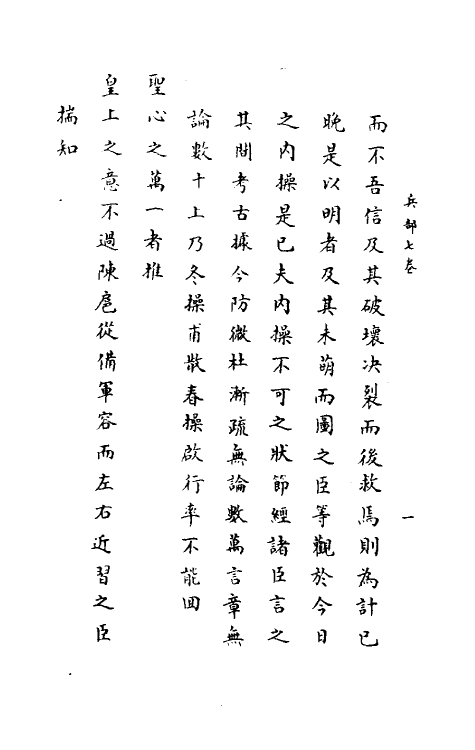 兵部七卷
一
而不吾信及其破壞决裂而後救焉則為計已
晚是以明者及其未萌而圖之臣等觀於今日
之内操是已夫内操不可之狀節經諸臣言之
其間考古據今防微杜漸疏無論數萬言章無
論數十上乃冬操甫散春操啟行率不能回
聖心之萬一者推
皇上之意不過陳扈從備軍容而左右近習之臣
揣知